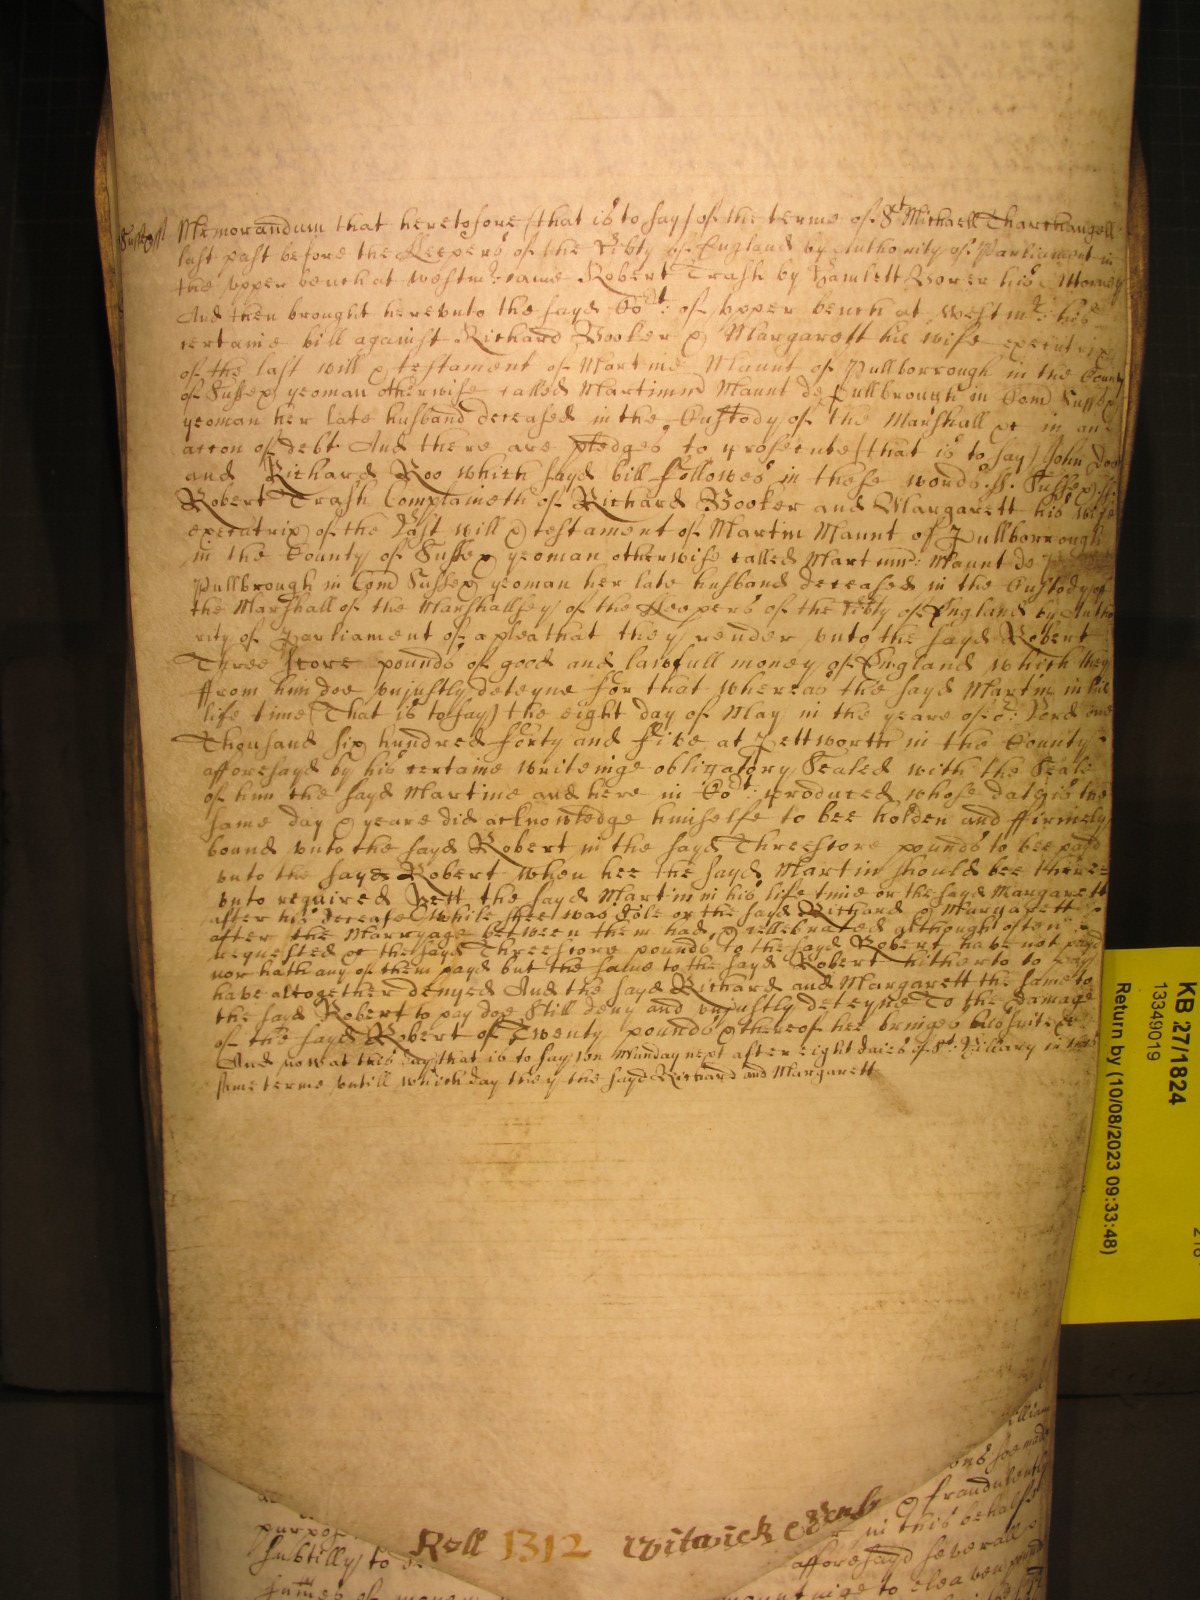 Sussex ss Memorandum that heretofore (that is to say) of the terme of St Michaell Tharchangell
last past before the Keepers of the Libty of England by Authority of Parliament in
the vpper bench at westmr: came Robert Trash by Hamlett Borer his Attorney
And then brought herevnto the sayd Cort: of vpper bench at westmr: his
certaine bill against Richard Booker & Margarett his wife executrix
of the last will & testament of Martine Maunt of Pullborrough in the County
of Sussex yeoman otherwise called Martinum Maunt de Pullbrough in Com Sussex
yeoman her late husband deceased in the Custody of the Marshall &c in an
accon of debt And there are pledges to prosecute (that is to say) John Doo
and Richard Roo which sayd bill followes in these words .ss. Sussex ss.
Robert Trash Complaineth of Richard Booker and Margarett his wife
executrix of the last will & testament of Martin Maunt of Pullborrough
in the County of Sussex yeoman otherwise called Martinum: Maunt de
Pullbrough in Com Sussex yeoman her late husband deceased in the Custody of
the Marshall of the Marshallsey of the Keepers of the Libty of England by Autho
rity of Parliament of a plea that they render vnto the sayd Robert
Three score pounds of good and lawfull money of England which they
ffrom him doe vnjustly deteyne for that whereas the sayd Martin in his
life time (That is to say) the eight day of May in the yeare of or: Lord one
Thousand six hundred forty and five at Pettworth in the County
afforesayd by his certaine writeinge obligatory Sealed with the Seale
of him the sayd Martine and here in Cort: produced whose date is the
same day & yeare did acknowledge himselfe to bee holden and ffirmely
bound vnto the sayd Robert in the sayd Threescore pounds to bee payd
vnto the sayd Robert when hee the sayd Martin should bee there=
vnto required Yett the sayd Martin in his life time or the sayd Margarett
after his decease while shee was sole or the sayd Richard & Margarett
after the Marryage between them had & cellebrated although often
requested &c the sayd Threescore pounds to the sayd Robert have not payd
nor hath any of them payd but the same to the sayd Robert hitherto to pay
have altogether denyed And the sayd Richard and Margarett the same to
the sayd Robert to pay doe still deny and vnjustly deteyne To the damage
of the sayd Robert of Twenty pounds & thereof hee bringes his suite &c
And now at this day that is to say on Munday next after eight daies of St: Hillary in this
same terme vntill which day they the sayd Richard and Margarett
Roll 1312 Witwick
purpos
subtilly to
ons hee made
& fraudulently
in this behalfe
afforesayd severall
to eleaven pound
KB 27/1824
13349019
Return by (10/08/2023 09:33:48)